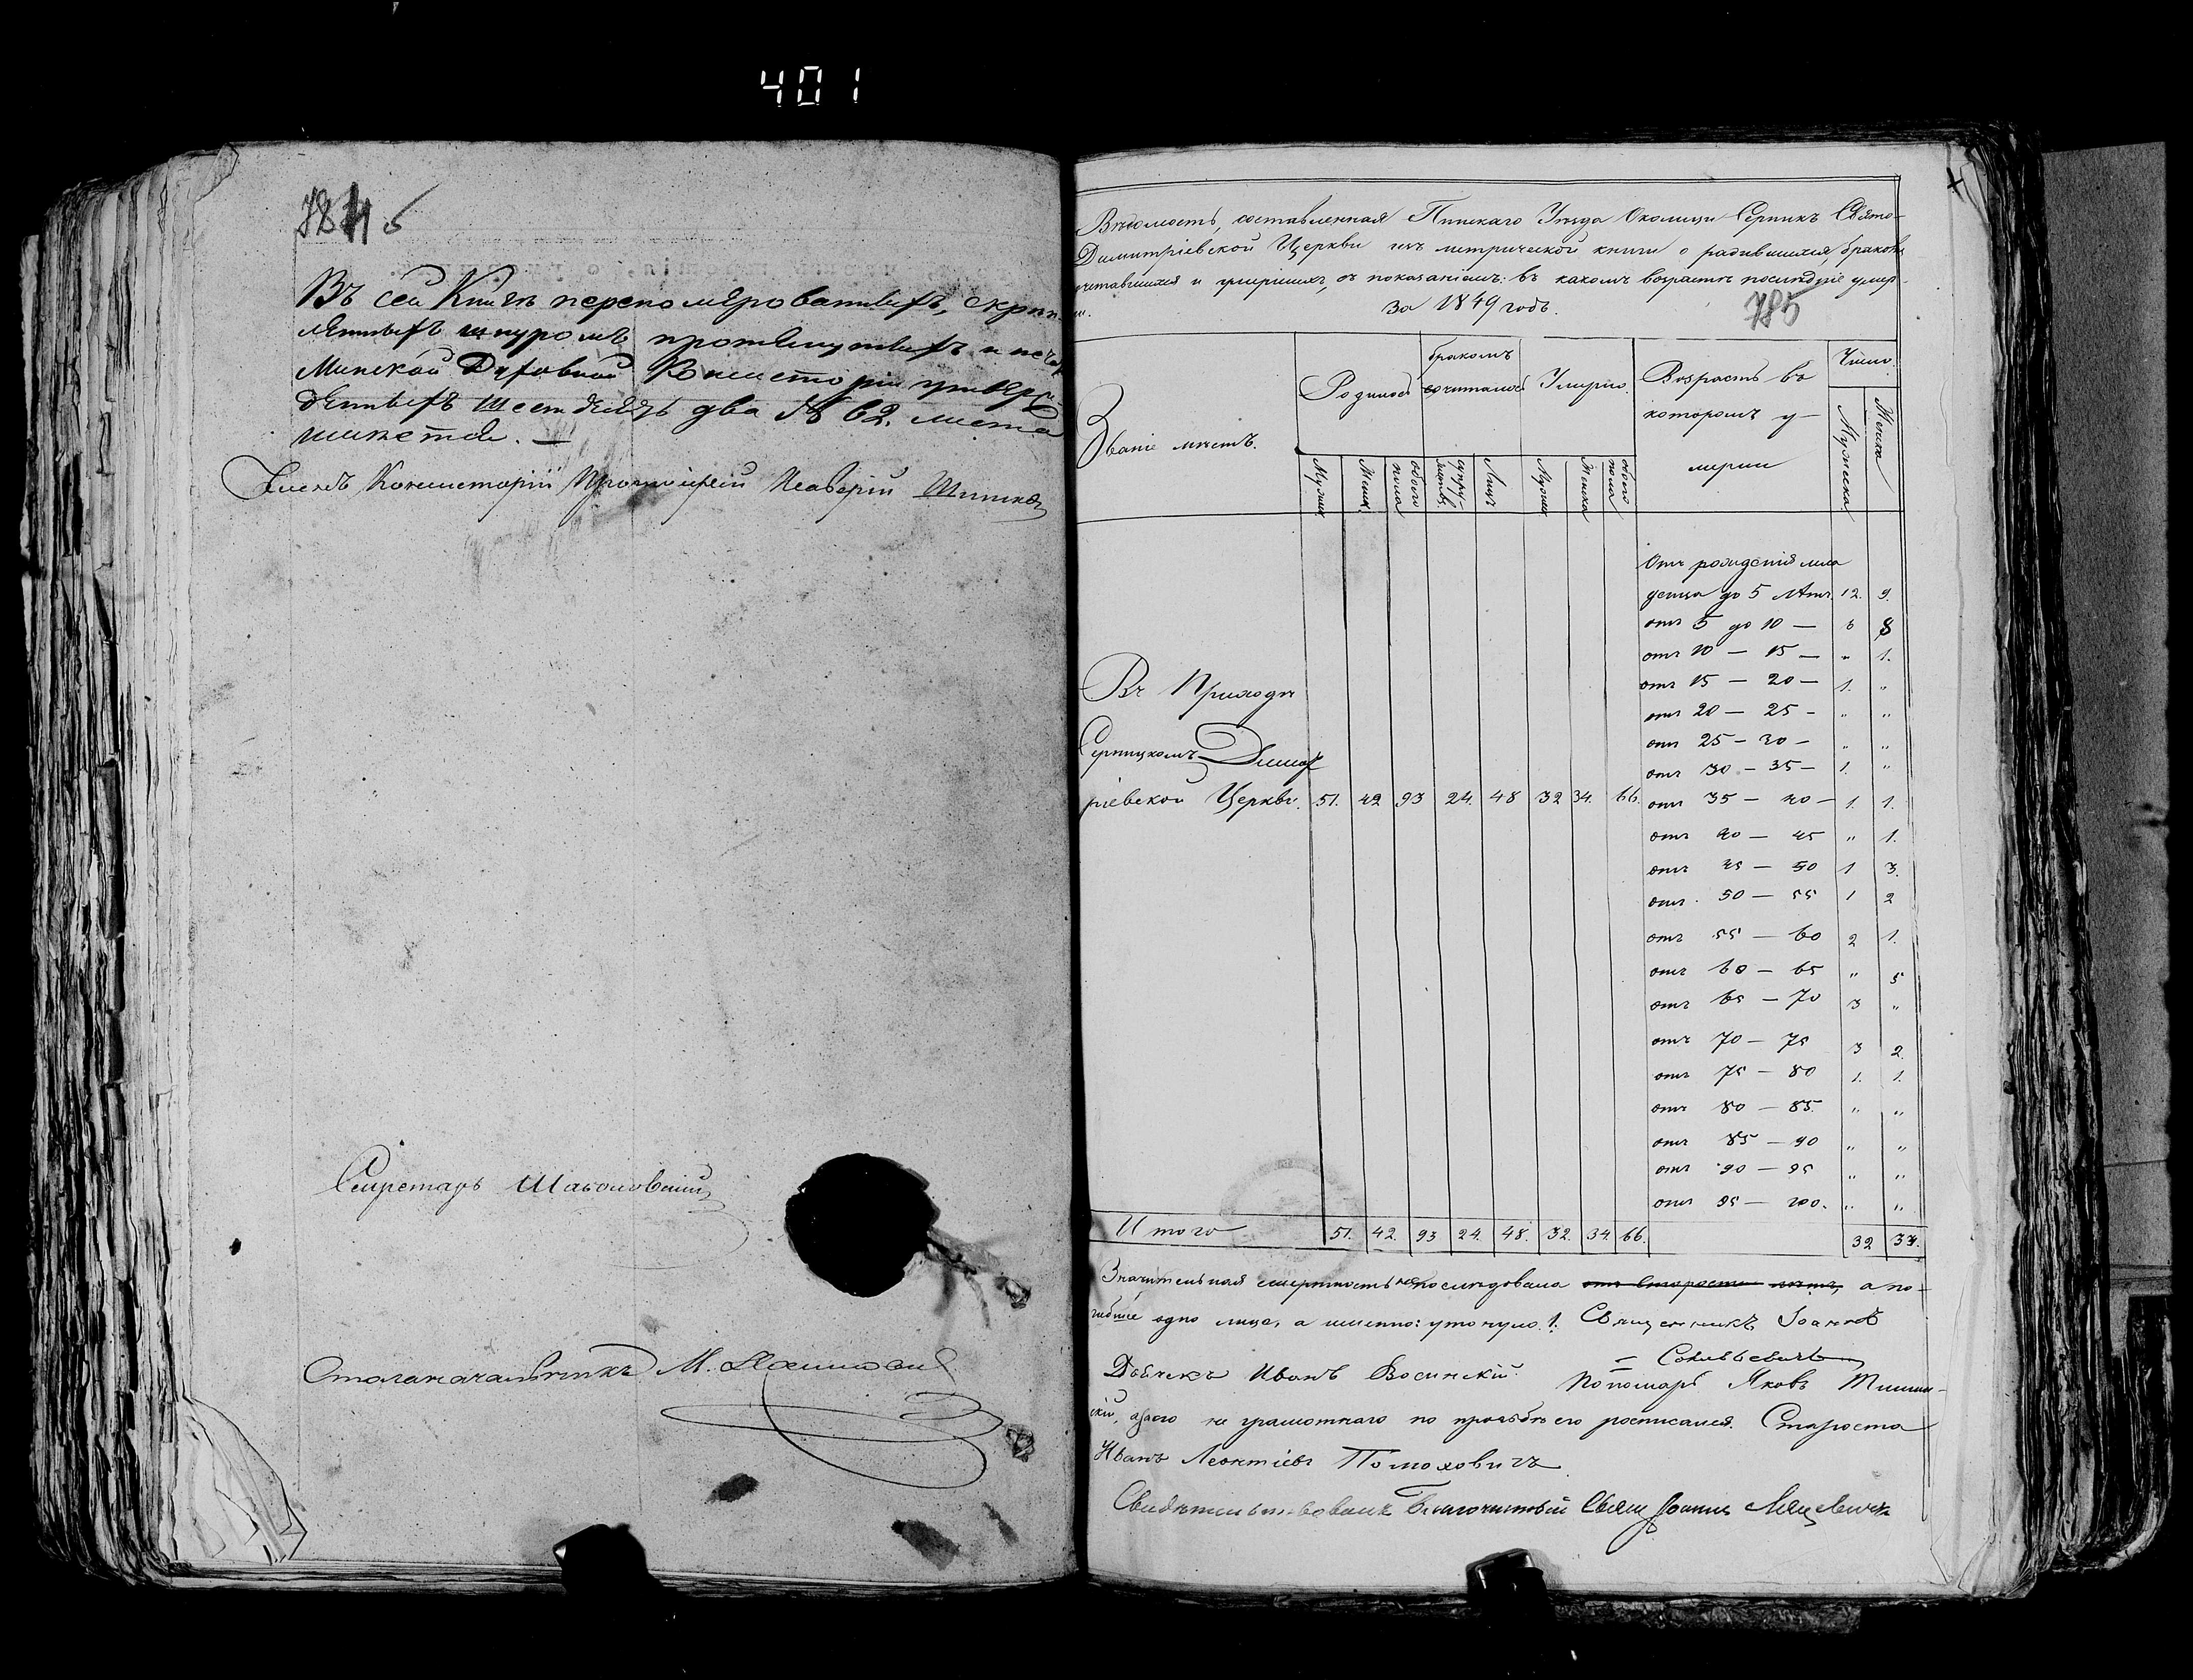 401
784 б
Въ сей Книгѣ переномерованныхъ, скрѣп-
ленныхъ шнуромъ протянутыхъ и печат
Минской Духовной Консисторіи утверж-
денныхъ шестьдесятъ два № 62. листа
имѣется. —
Членъ Консисторіи Протоіерей
Секретарь
Столоначальникъ М.
Вѣдомость, составленная Пинскаго Уѣзда Околицы Серникъ Свято-
Димитріевской Церкви изъ метрической книги о родившихся, бракомъ
сочетавшихся и умершихъ, съ показаніемъ: въ какомъ возрастѣ послѣдніе умер-
ли. За 1849 годъ.
785
Званіе мѣстъ. Родилось бракомъ сочиталось Умерло. Возрастъ въ которомъ у- мерли Число.
Мужск Женск обоего пола супру- жествъ Лицъ Мужск Женска обоего пола Мужеска Женска
Отъ рожденія мла
денца до 5 лѣтъ 12. 9.
отъ 5 до 10 — 6 8
отъ 10 — 15 — „ 1.
отъ 15 — 20 — 1. „
отъ 20 — 25 — „ „
отъ 25 — 30 — „ „
отъ 30 — 35 — 1. „
Въ Приходѣ
Серницкомъ Димит
ріевской Церкви. 51. 42 93 24. 48 32 34. 66. отъ 35 — 40 — 1. 1.
отъ 40 — 45 „ 1.
отъ 45 — 50 1 3.
отъ 50 — 55 1 2
отъ 55 — 60 2 1.
отъ 60 — 65 „ 5
отъ 65 — 70 3 „
отъ 70 — 75 3 2.
отъ 75 — 80 1. 1.
отъ 80 — 85. „ „
отъ 85 — 90 „ „
отъ 90 — 95 „ „
отъ 95 — 100. „ „
Итого 51. 42. 93 24. 48. 32. 34. 66. 32 34.
Значительная смертность не послѣдовала отъ старости лѣтъ, а по-
гибшее одно лице, а именно: утонуло. 1. Священникъ Іоаннъ
Дьячекъ Иванъ Восинскій. Пономарь Яковъ
скій, а за него не грамотнаго по прозьбѣ его росписался. Староста
Иванъ Леонтіевъ Полюховичъ
Свидѣтельствовалъ Благочинный Свящ Іоаннъ